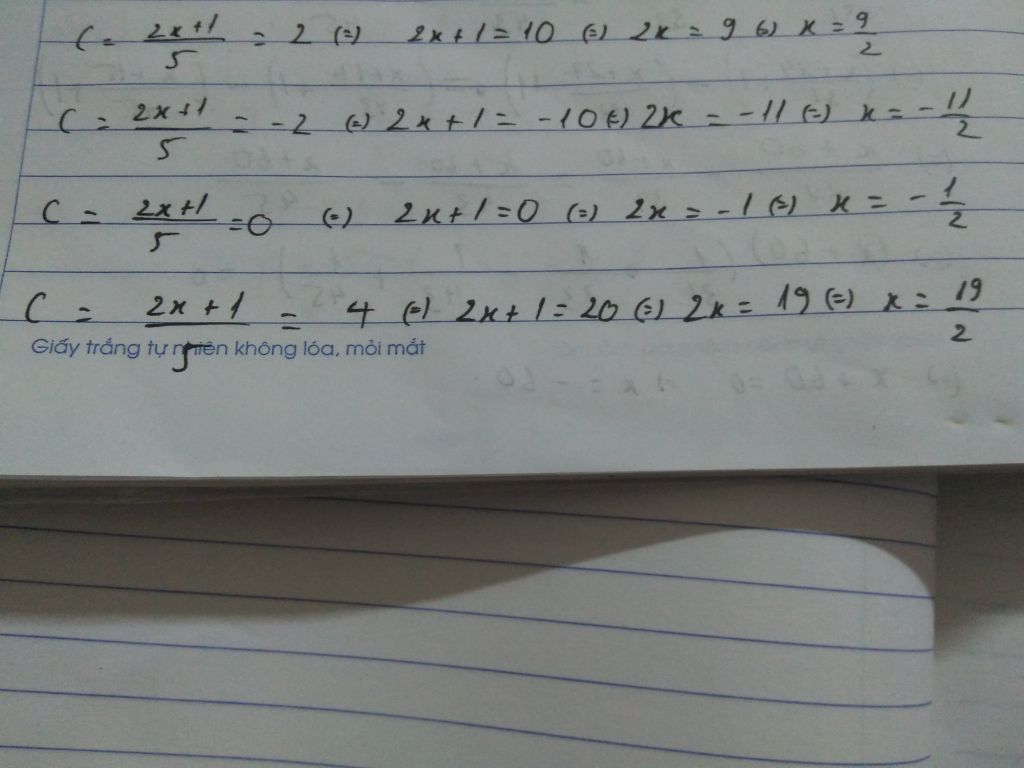 C = 2x+1/5 = 2 (=) 2x+1=10 (=) 2x = 9 (=) x = 9/2
C = 2x+1/5 = -2 (=) 2x+1 = -10 (=) 2x = -11 (=) x = -11/2
C = 2x+1/5 =0 (=) 2x+1=0 (=) 2x = -1 (=) x = -1/2
C = 2x+1/5 = 4 (=) 2x+1=20 (=) 2x = 19 (=) x = 19/2
Giấy trắng tự nhiên không lóa, mỏi mắt